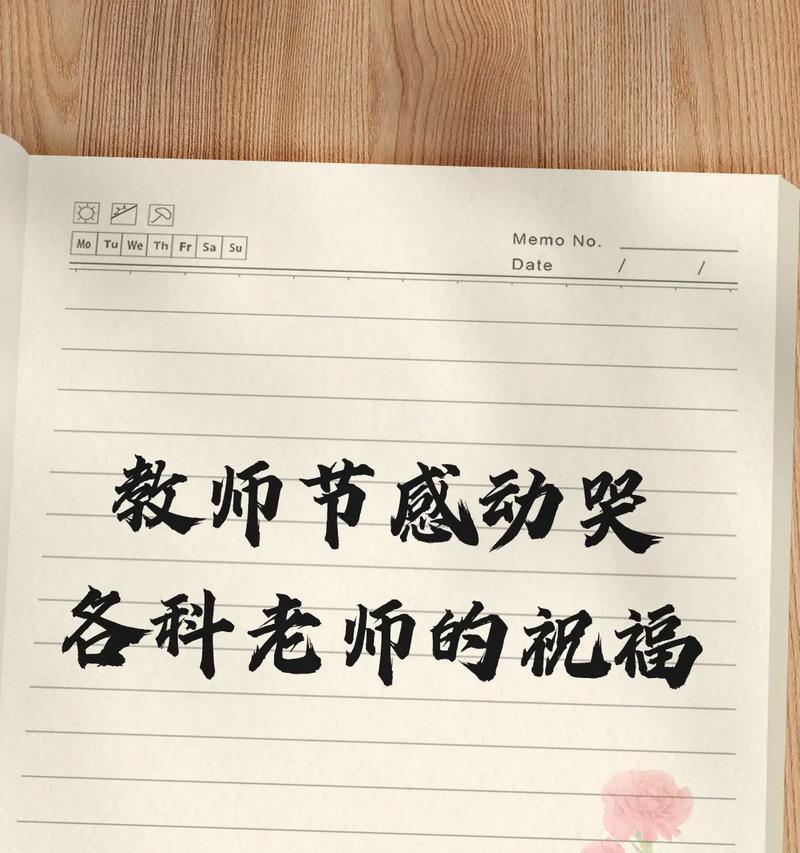 Mo Tu We Th Fr Sa Su
Memo No.
Date / /
教师节感动哭
各科老师的祝福